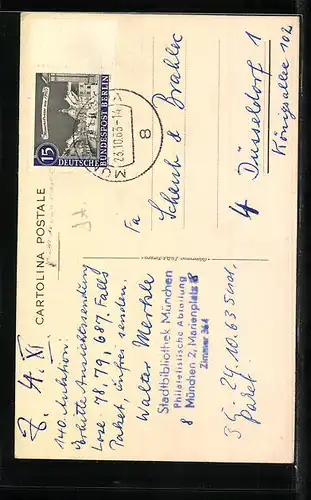 CARTOLINA POSTALE
15
DEUTSCHE
BUNDESPOST BERLIN
23.10.63-14
8
140. Auktion:
Erbitte Ansichtssendung
Lose 78, 79, 687. Falls
Paket, unfrei senden.
Walter Merkle
Stadtbibliothek München
Philatelistische Abteilung
8 München 2, Marienplatz 8
Zimmer 364
Fa
4 Düsseldorf 1
Königsallee 102
24.10.63
Paket